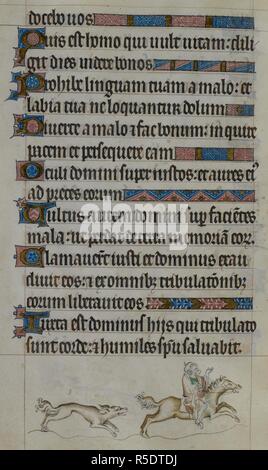 docebo uos
Quis est homo qui uult uitam: dili
git dies uidere bonos
Prohibe linguam tuam a malo: et
labia tua ne loquantur dolum
Diuerte a malo & fac bonum: inquire
pacem et persequere eam
Oculi domini super iustos: et aures ei
ad preces eorum
Vultus autem domini sup facientes
mala: ut perdat de terra memoriam eor
Clamauerunt iusti et dominus exau
diuit eos: & ex omnibz tribulationibz
eorum liberauit eos
Iuxta est dominus hijs qui tribulato
sunt corde: & humiles spu saluabit
alamy
Image ID: R5DTDJ
www.alamy.com